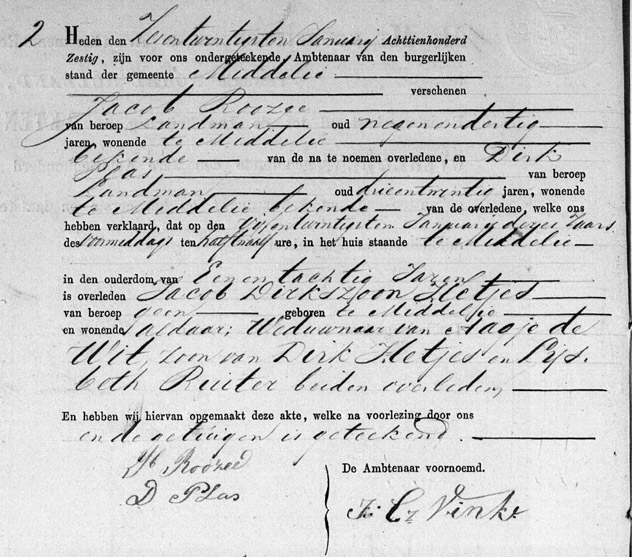 2 Heden den Zeventwentigsten Januarij Achttienhonderd
Zestig, zijn voor ons ondergeteekende, Ambtenaar van den burgerlijken
stand der gemeente Middelie
verschenen
Jacob Roozee
van beroep Landman oud negenendertig
jaren, wonende te Middelie
bekende van de na te noemen overledene, en Dirk
Plas van beroep
Landman oud drieentwentig jaren, wonende
te Middelie bekende van de overledene, welke ons
hebben verklaard, dat op den Januarij dezes Jaars
des voormiddags ten half ure, in het huis staande te Middelie
in den ouderdom van Een en tachtig Jaren
is overleden Jacob Dirkszoon Hetjes
van beroep geen geboren te Middelie
en wonende aldaar; Weduwnaar van Aagje de
Wit, zoon van Dirk Hetjes en Lijs-
beth Ruiter beiden overleden,
En hebben wij hiervan opgemaakt deze akte, welke na voorlezing door ons
en de getuigen is geteekend.
Jb Roozee
De Ambtenaar voornoemd.
D Plas
Vinke